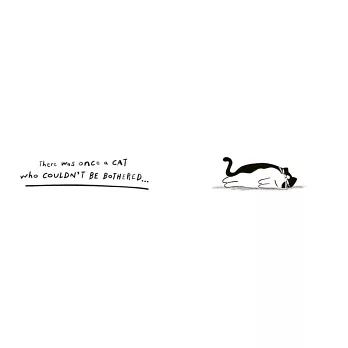 There was once a CAT
who COULDN'T BE BOTHERED...